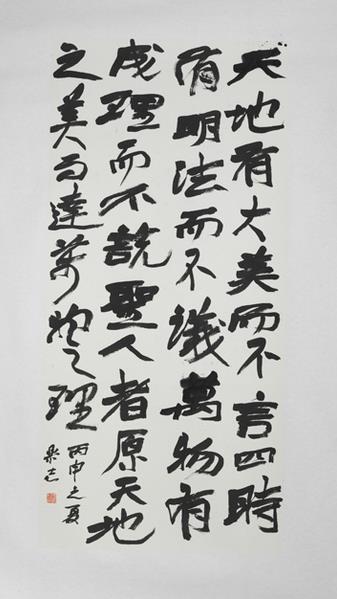 天地有大美而不言四時
有明法而不議萬物有
成理而不說聖人者原天地
之美而達萬物之理
丙申之夏